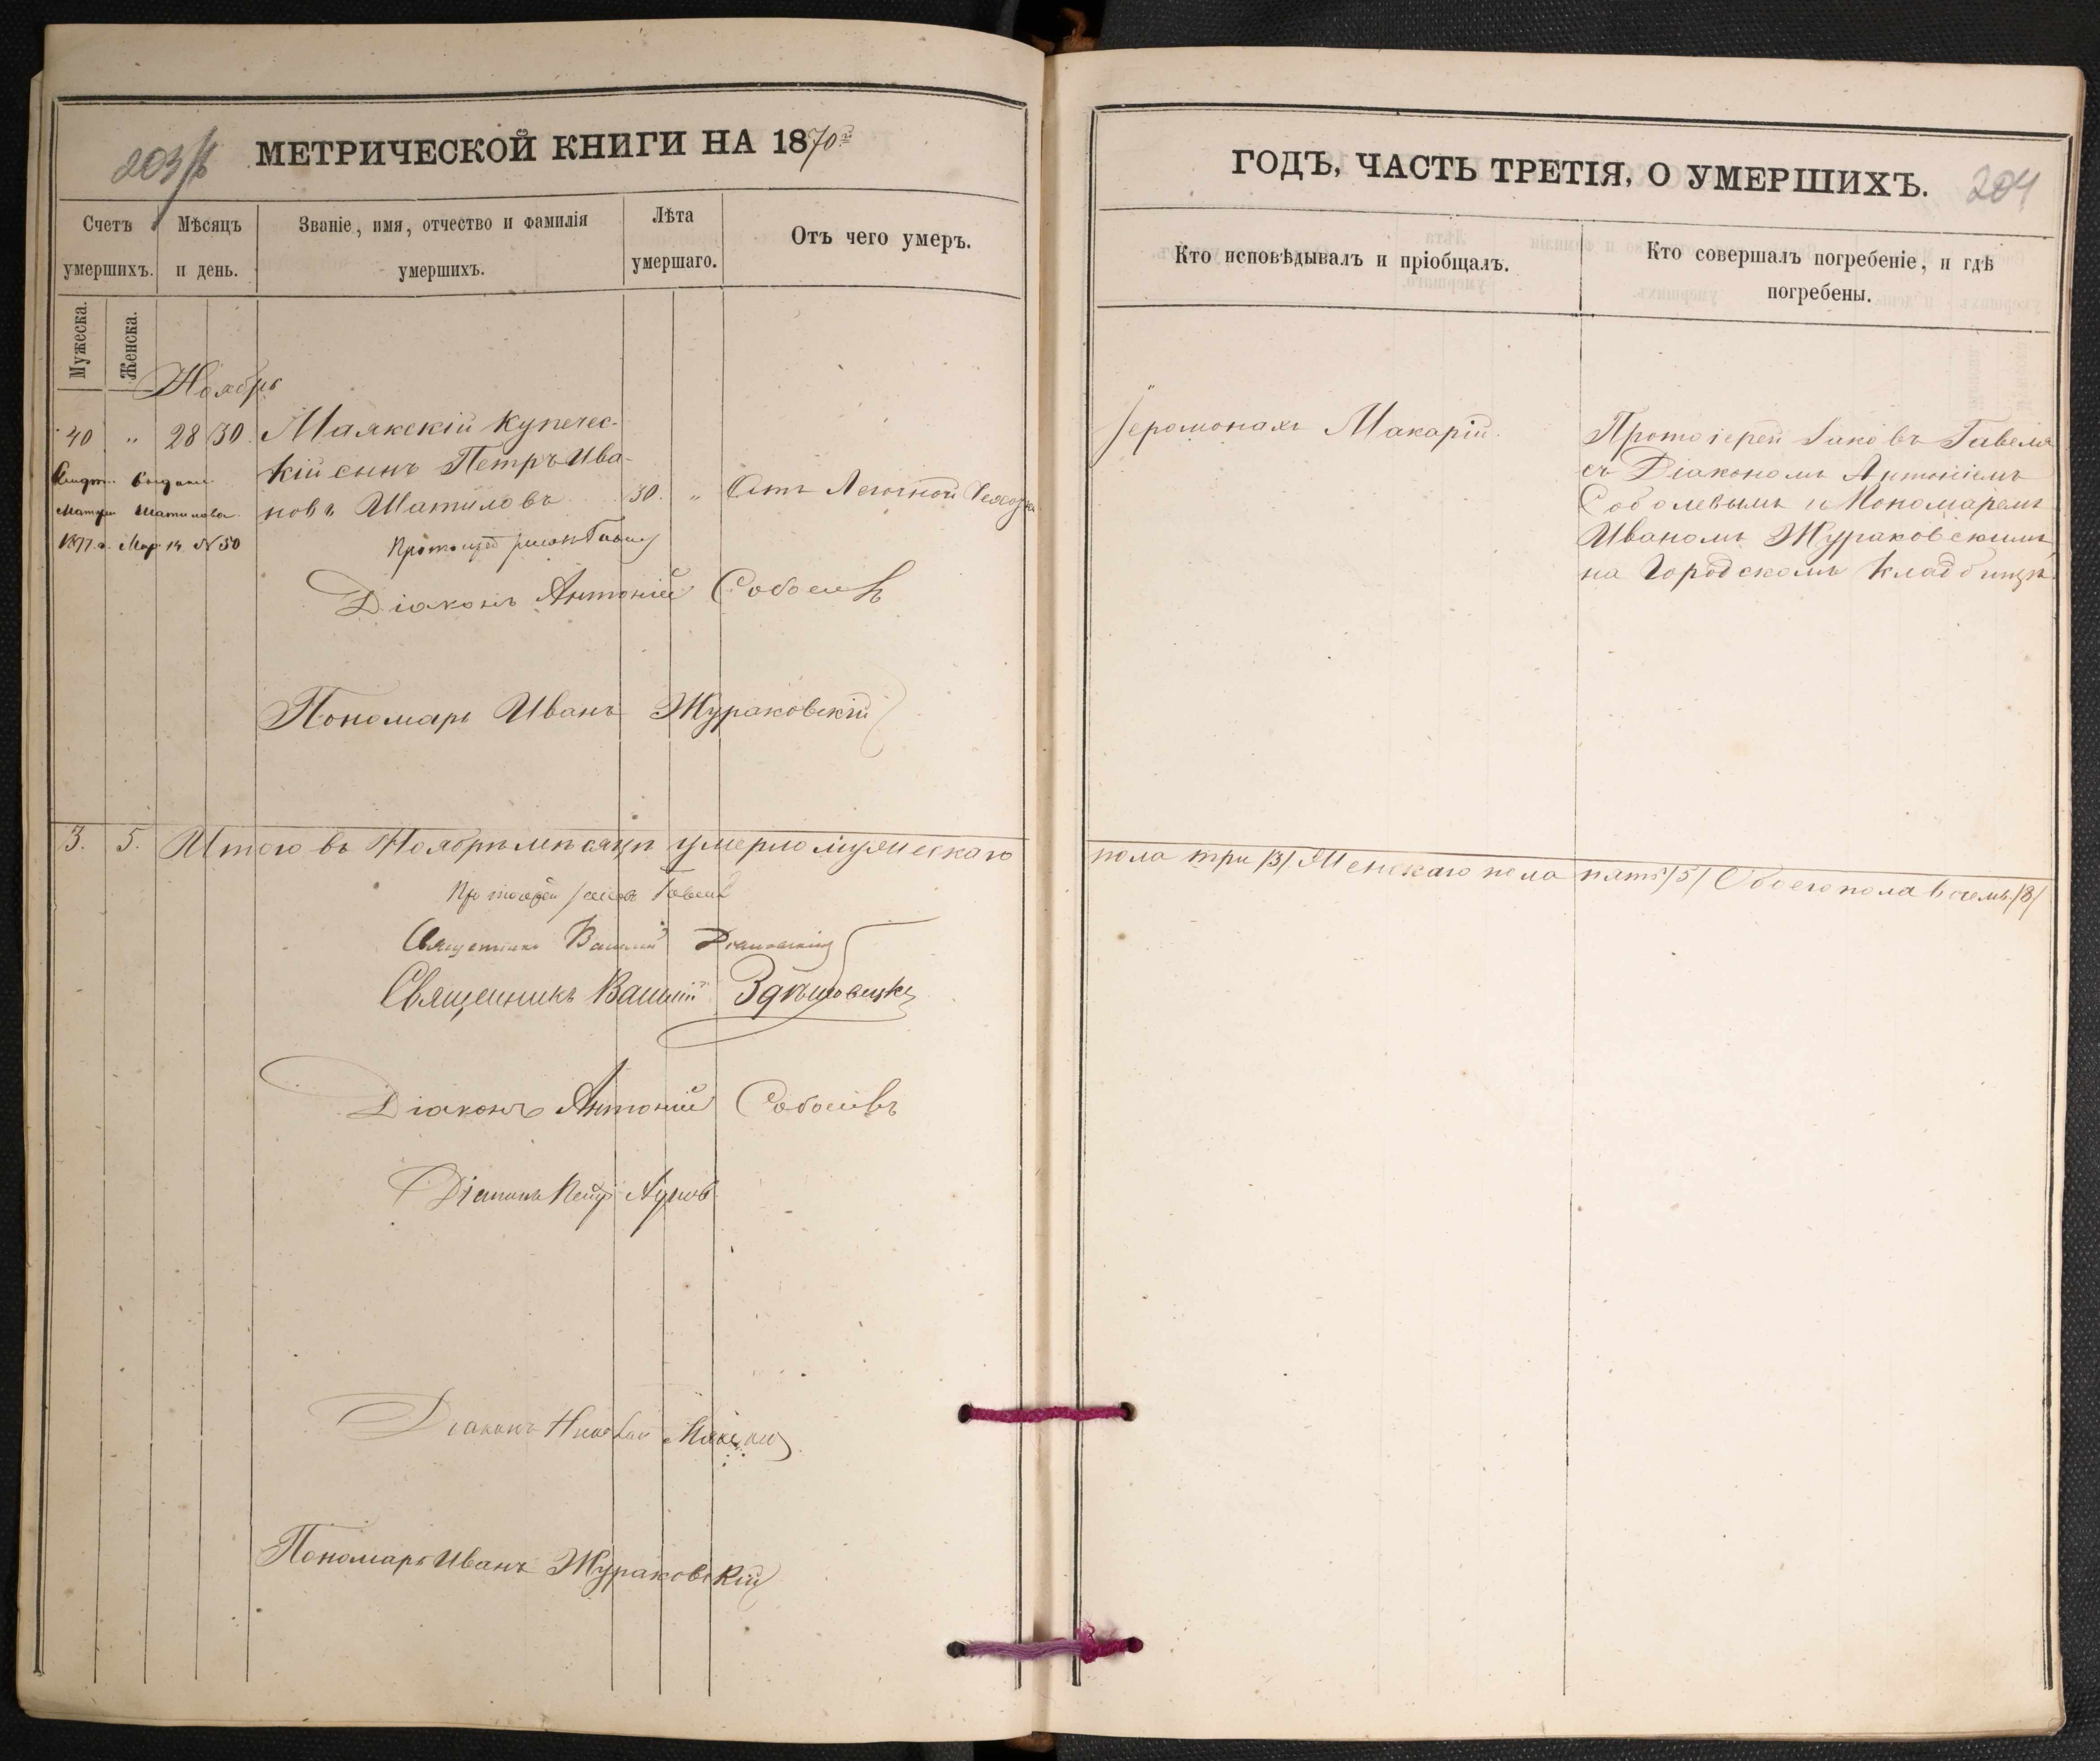 203
МЕТРИЧЕСКОЙ КНИГИ НА 1870й
Счетъ умершихъ.
Мѣсяцъ и день.
Званіе, имя, отчество и фамилія умершихъ.
Лѣта умершаго.
Отъ чего умеръ.
Мужеска.
Женска.
Ноябрь
40 „ 28 30 Маякскій купечес-
кій сынъ Петръ Ива-
новъ Шатиловъ 30. „ Отъ Легочной Чахотки
Выдано
Матери Шатилова
1877 г. Мар 14 № 50
Протоіерей
Діаконъ Антоній Соболевъ
Пономарь Иванъ Жураковскій
3. 5. Итого въ Ноябрѣ мѣсяцѣ умерло мужескаго
Протоіерей Іаковъ Гавель
Священникъ Василій
Священникъ Василій
Діаконъ Антоній Соболевъ
Діаконъ Петръ
Діаконъ Николай
Пономарь Иванъ Жураковскій
ГОДЪ, ЧАСТЬ ТРЕТІЯ, О УМЕРШИХЪ.
204
Кто исповѣдывалъ и пріобщалъ.
Кто совершалъ погребеніе, и гдѣ погребены.
Іеромонахъ Макарій.
Протоіерей Іаковъ Гавеля
съ Діакономъ Антоніемъ
Соболевымъ и Пономаремъ
Иваномъ Жураковскимъ
на Городскомъ кладбищѣ.
пола три /3/ Женскаго пола пять /5/ Обоего пола восемь /8/